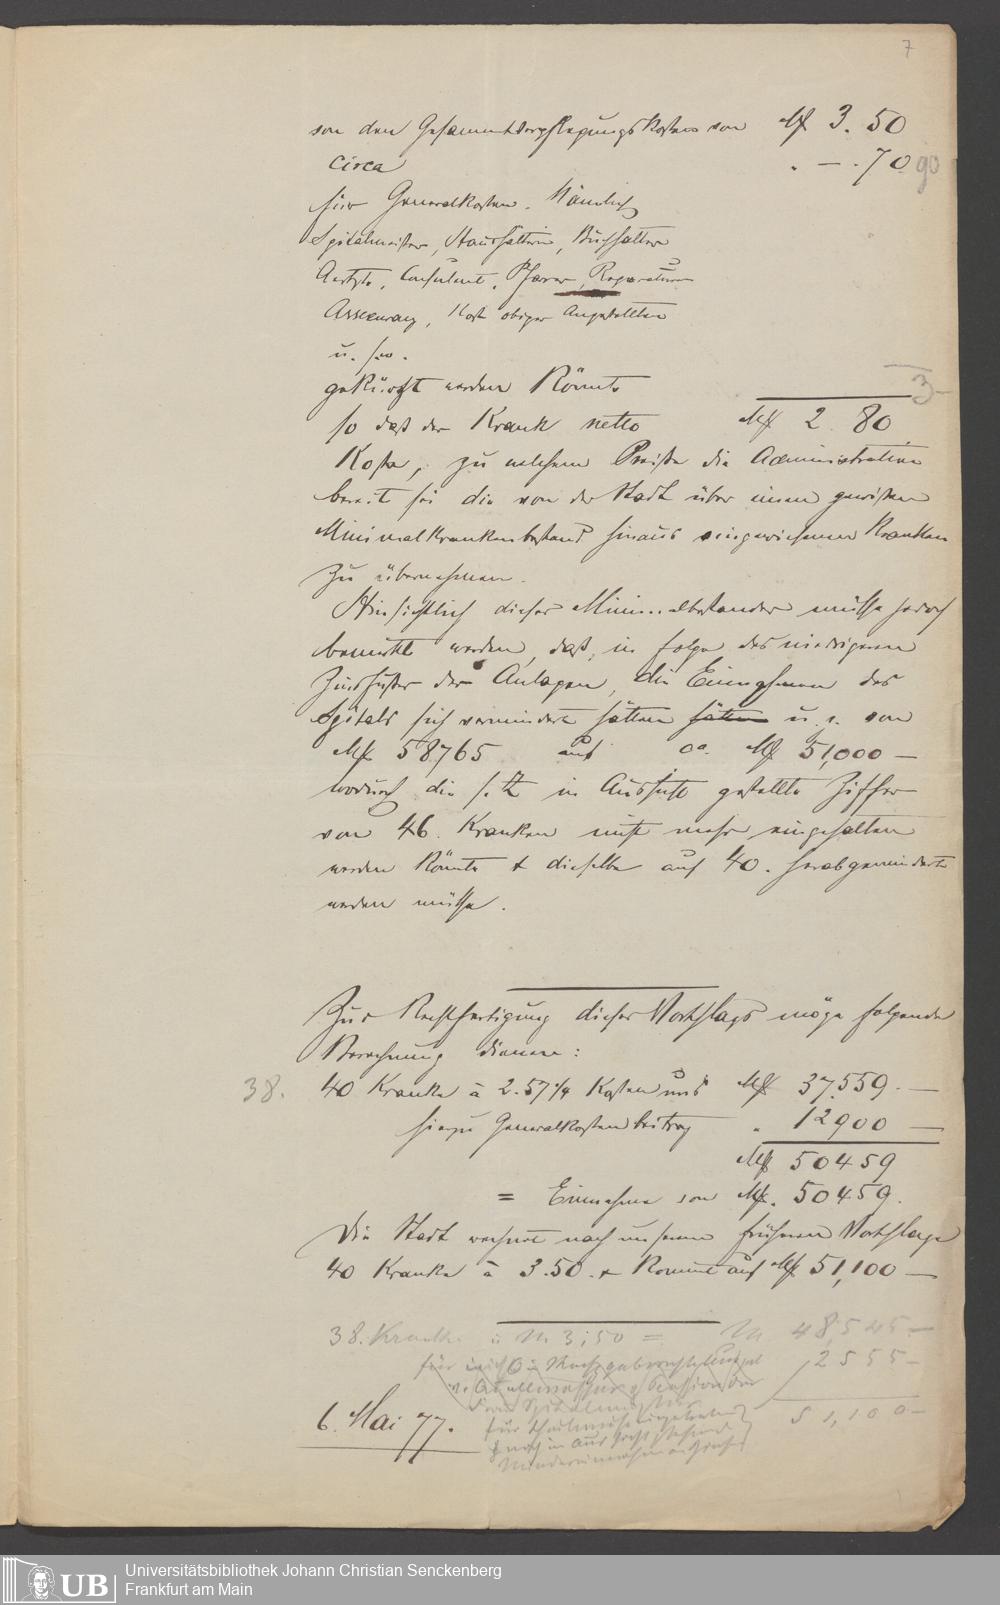 7
von den Gesammtverpflegungskosten von M 3. 50
circa " — . 70 90
für Generalkosten. Nämlich
Spitalmeister, Haushälterin, Buchhalter
Aerzte, Consulent, Pfarrer, Reparaturen
Assecuranz, Kost obiger Angestellten
u. s. w.
gekürzt werden könnte
3 —
so daß der Kranke netto M 2. 80
Koste, zu welchem Preise die Administration
bereit sei die von der Stadt über einen gewissen
Minimalkrankenbestand hinaus eingewiesenen Kranken
zu übernehmen.
Hinsichtlich dieses Minimalbestandes müsse jedoch
bemerkt werden, daß, in Folge des niedrigeren
Zinsfußes der Anlagen, die Einnahmen des
Spitals sich vermindert hätten hätten u. z. von
M 58765 auf ca. M 51,000 —
wodurch die s. Zt. in Aussicht gestellte Ziffer
von 46. Kranken nicht mehr eingehalten
werden könnte & dieselbe auf 40. herabgemindert
werden müsse.
Zur Rechtfertigung dieses Vorschlags möge folgende
Berechnung dienen:
38. 40 Kranke à 2.57 1/4 Kosten uns M 37.559. —
hiezu Generalkostenbeitrag " 12900 —
M 50459
= Einnahme von M. 50459.
Die Stadt rechnet nach unserem früheren Vorschlage
40 Kranke à 3.50. & kommt auf M 51,100 —
38. Kranke à M 3,50 = M 48,545 —
für
2555 —
51,100 —
6. Mai 77.
für theilweise eingetretene
& noch in Aussicht stehende
Mindereinnahmen an
Universitätsbibliothek Johann Christian Senckenberg
UB Frankfurt am Main